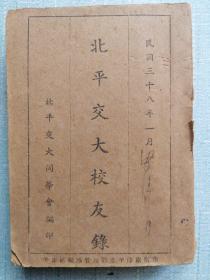 民国三十八年一月
北平交大校友錄
北平交大同學會編印